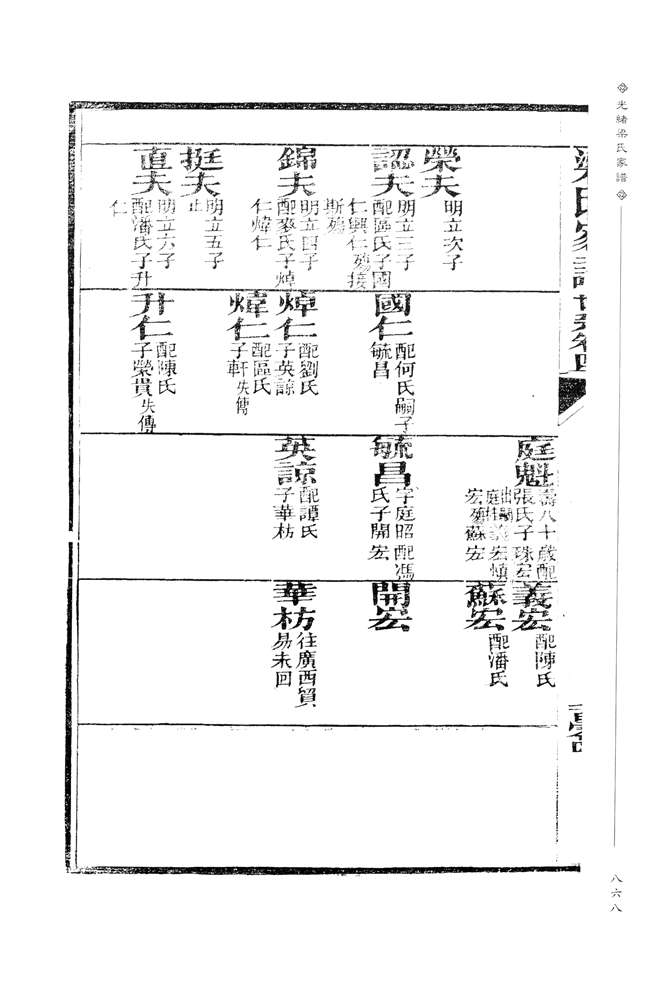 光緒梁氏家譜
榮夫
明立次子
認夫
明立三子
配區氏子國
仁興仁殤接
斯殤
錦夫
明立四子
配麥氏子焯
仁煒仁
挺夫
明立五子
止
直夫
明立六子
配潘氏子升
仁
國仁
配何氏嗣子
毓昌
焯仁
配劉氏
子英諒
煒仁
配區氏
子軒失傳
升仁
配陳氏
子榮貴失傳
庭魁
壽八十歲配
張氏子珠宏
宏殤蘇宏
毓昌
字庭昭配馮
氏子開宏
英諒
配譚氏
子華枋
義宏
配陳氏
蘇宏
配潘氏
開宏
華枋
往廣西貿
易未回
八六八